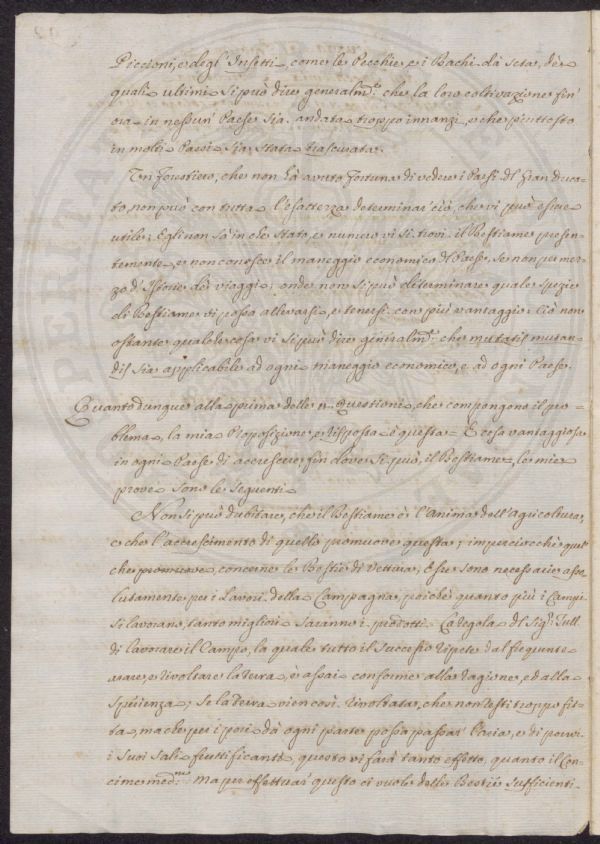 Piccioni, e degl' Insetti, come le Pecchie, e i Bachi da seta, de
quali ultimi si può dire generalm.te che la loro coltivazione fin'
ora in nessun' Paese sia andata troppo innanzi, e che piuttosto
in molti Paesi sia stata trascurata.
Un Forestiero, che non hà avuto fortuna di vedere i Paesi del Gran Duca-
to, non può con tutta l'esattezza determinar' ciò, che vi può essere
utile; Egli non sà in che stato, e numero vi si trovi il Bestiame presen-
temente, e non conosce il maneggio economico del Paese, se non per mez-
zo d' Istorie dei viaggi; onde non si può determinare quale spezie
di Bestiame vi possa allevarsi, e tenersi con più vantaggio. Ciò non
ostante qualche cosa vi si può dire generalm.te che mutatis mutan-
dis sia applicabile ad ogni maneggio economico, e ad ogni Paese.
Quanto dunque alla prima delle Questioni, che compongono il pro-
blema, la mia Proposizione, e risposta è questa = È cosa vantaggiosa
in ogni Paese di accrescere, fin dove si può, il Bestiame, le mie
prove sono le seguenti.
Non si può dubitare, che il Bestiame è l'anima dell'Agricoltura,
e che l'accrescimento di quello promuove questa; imperciocchè quel
che promuove, concerne le Bestie di Vettura; Esse sono necessarie asso-
lutamente per i Lavori della Campagna, poichè quanto più i Campi
si lavorano, tanto migliori saranno i prodotti. La regola del Sig.r Tull
di lavorare il Campo, la quale tutto il successo ripete dal frequente
arare, e rivoltare la terra, è assai conforme alla ragione, ed alla
sperienza; se la Terra vien così rivoltata, che non resti troppo fit-
ta, ma che per i pori da ogni parte possa passar' l'aria, e di porvi
i suoi sali fruttificanti, questo vi farà tanto effetto, quanto il Con-
cime med.mo Ma per effettuar' questo ci vuole delle Bestie sufficienti.